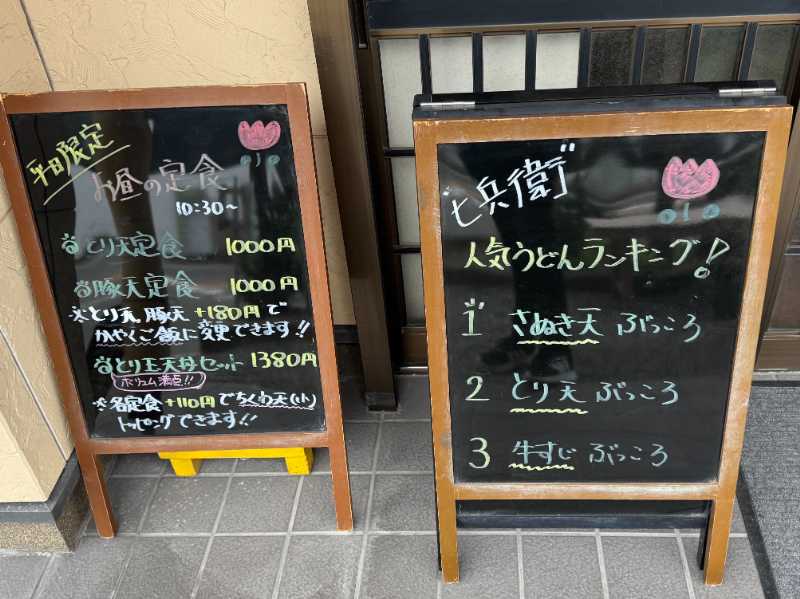 平日限定
お昼の定食
10:30~
とり天定食 1000円
豚天定食 1000円
※とり天、豚天 +180円で
かやくご飯に変更できます!!
とり玉天丼セット 1380円
ボリューム満点!!
※各定食+110円でちくわ天(小)
トッピングできます!!
"七兵衛"
人気うどんランキング!
1 さぬき天 ぶっころ
2 とり天 ぶっころ
3 牛すじ ぶっころ